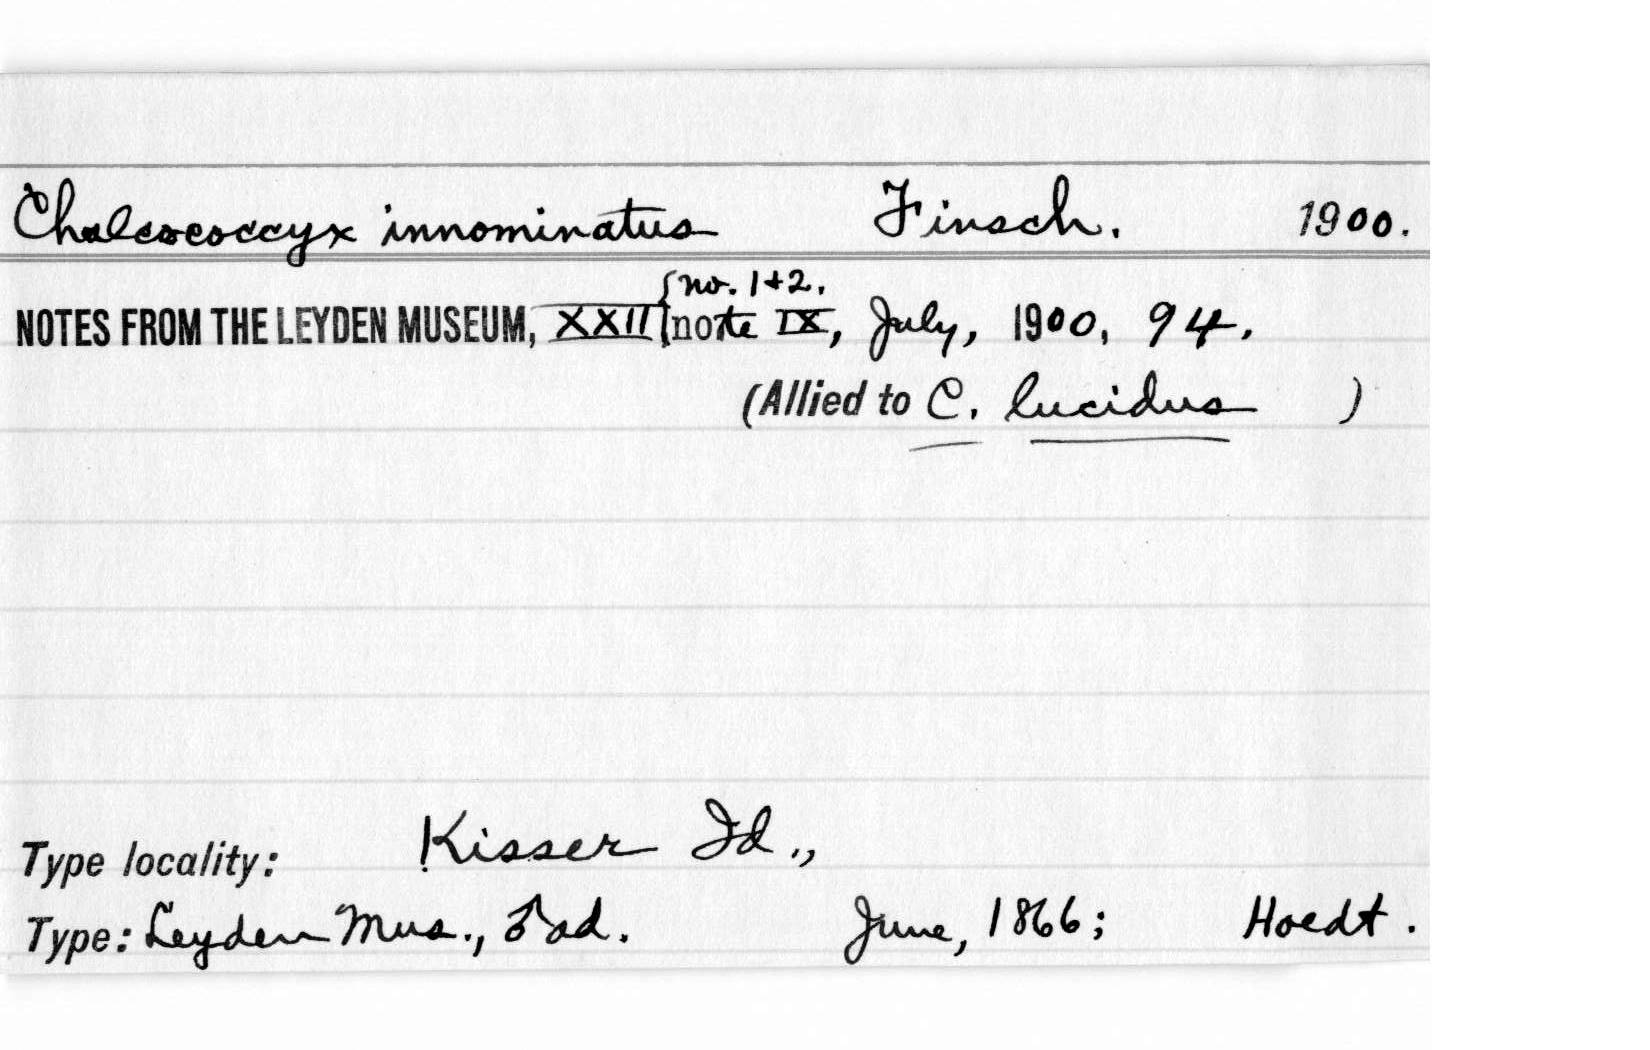 Chalcococcyx innominatus Finsch. 1900.
{no. 1+2.
NOTES FROM THE LEYDEN MUSEUM, XXII {note IX, July, 1900, 94.
(Allied to C. lucidus )
Type locality: Kisser Id.,
Type: Leyden Mus., ♂ad. June, 1866; Hoedt.